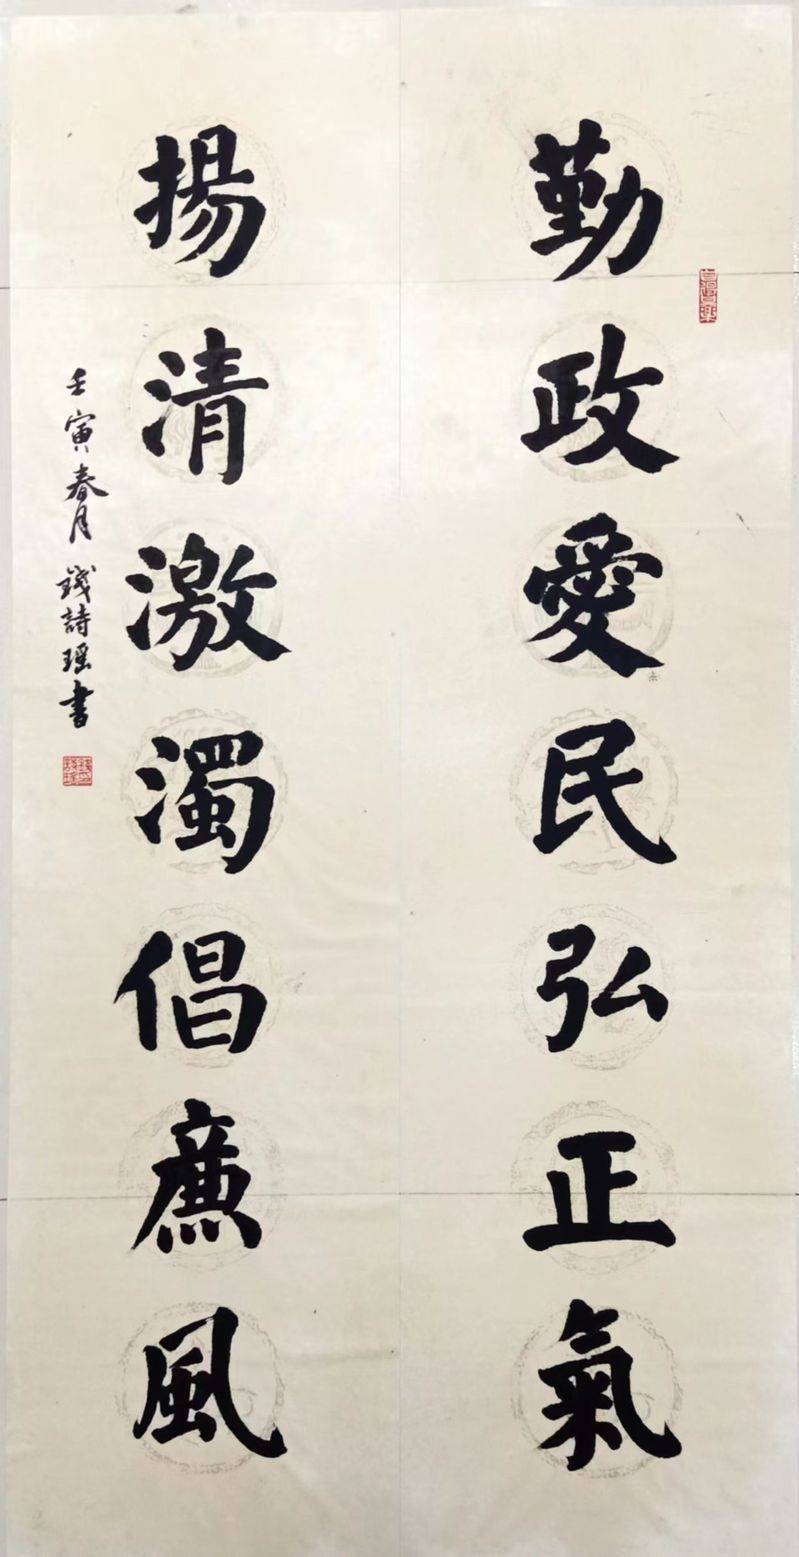 勤政愛民弘正氣
揚清激濁倡廉風
壬寅春月 錢詩瑶書